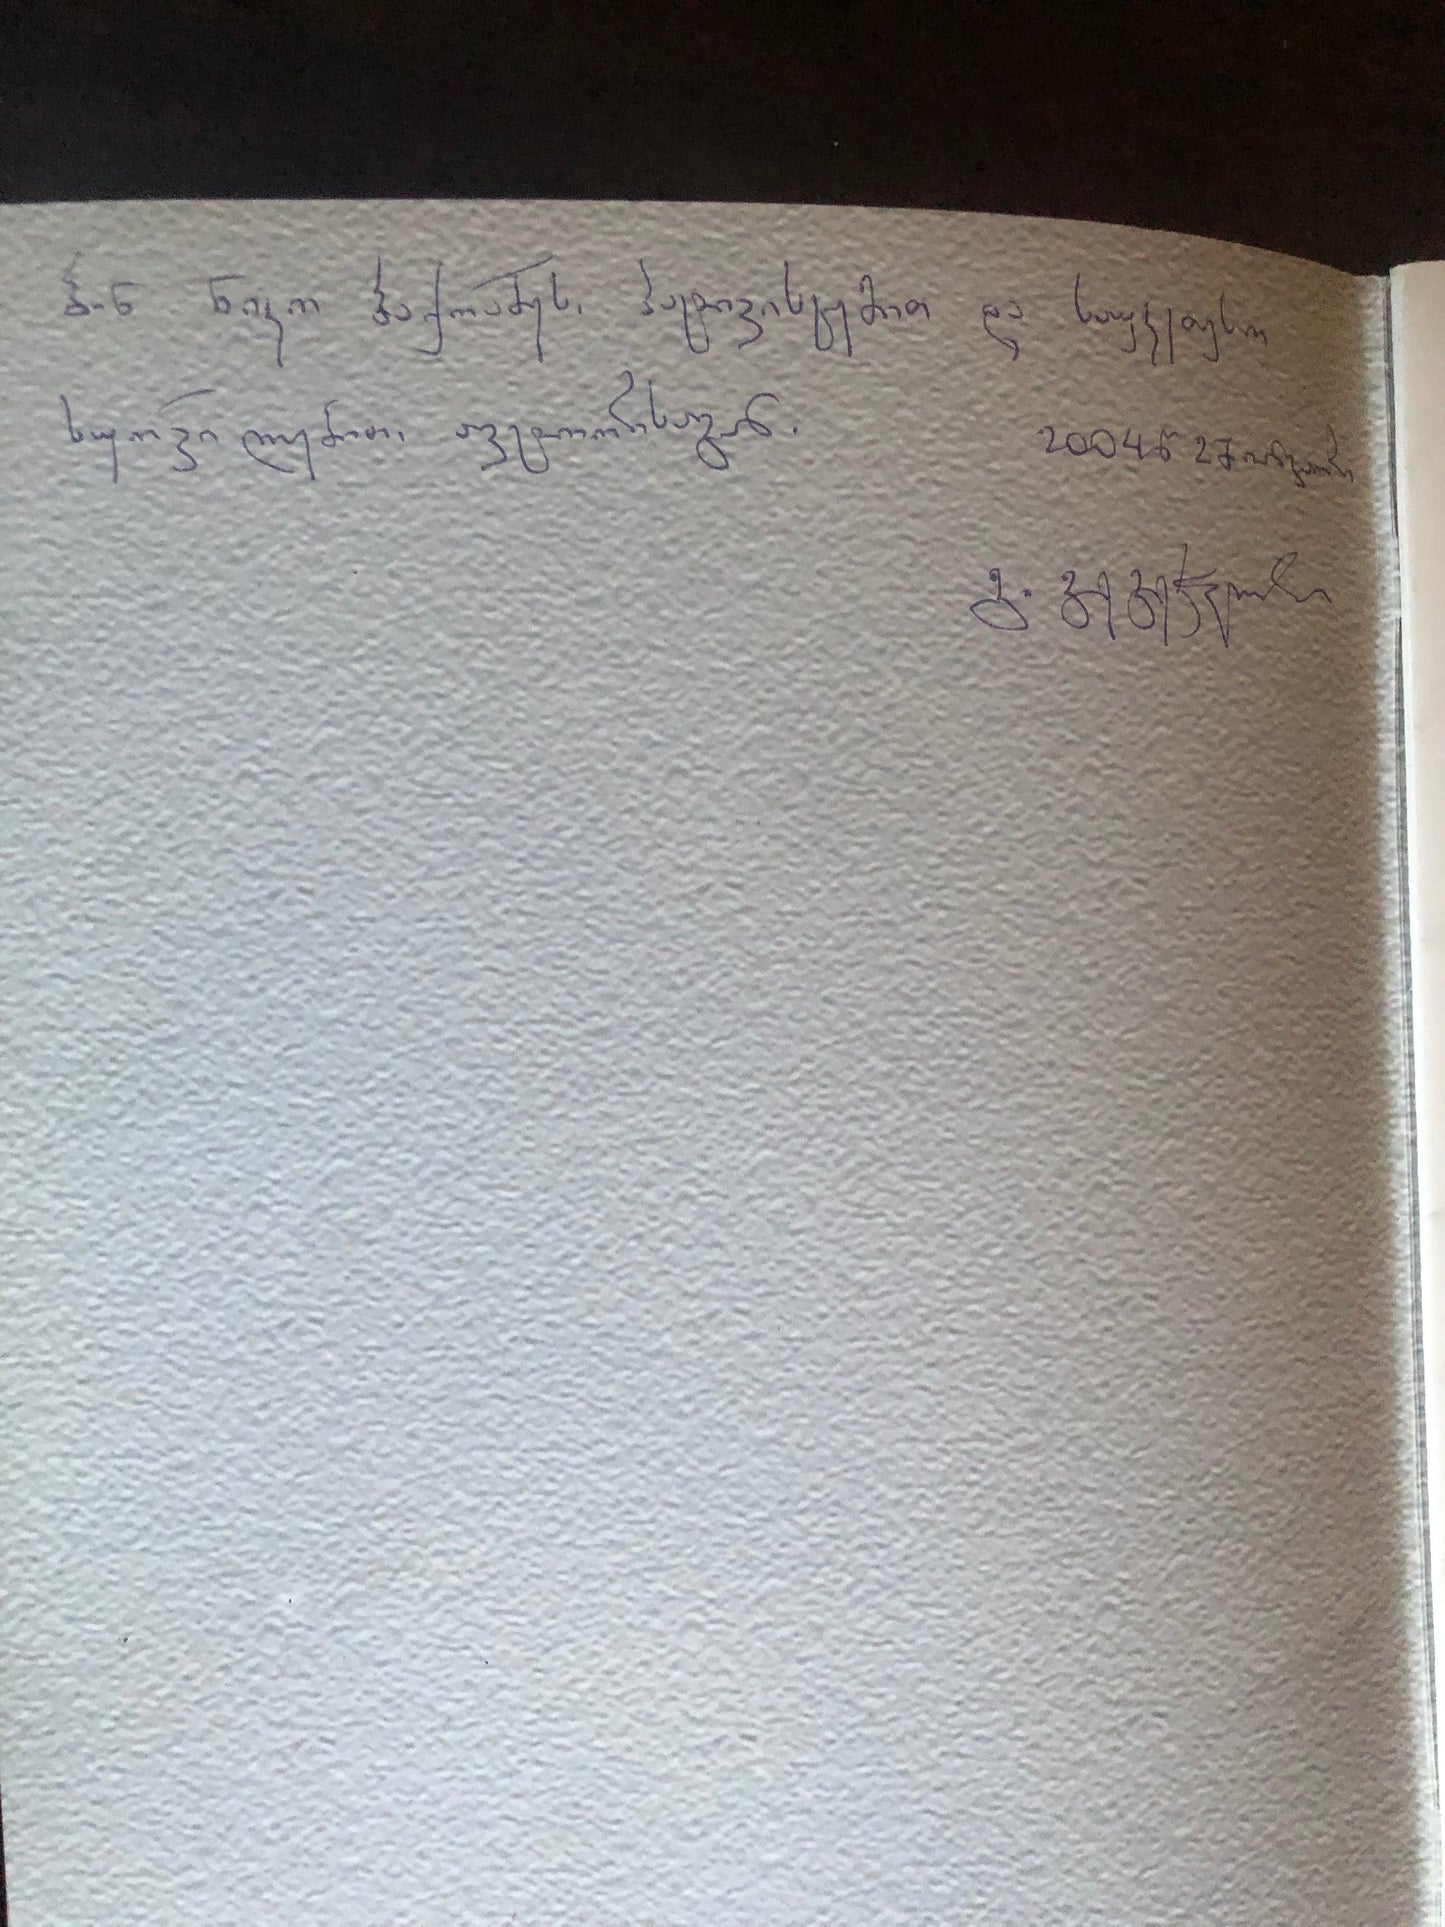 ქ-ნ ნიკო ჭაქრაძეს. პატივისცემით და საუკეთესო
სურვილებით. ავტორისაგან.
2004წ 27 იანვარი